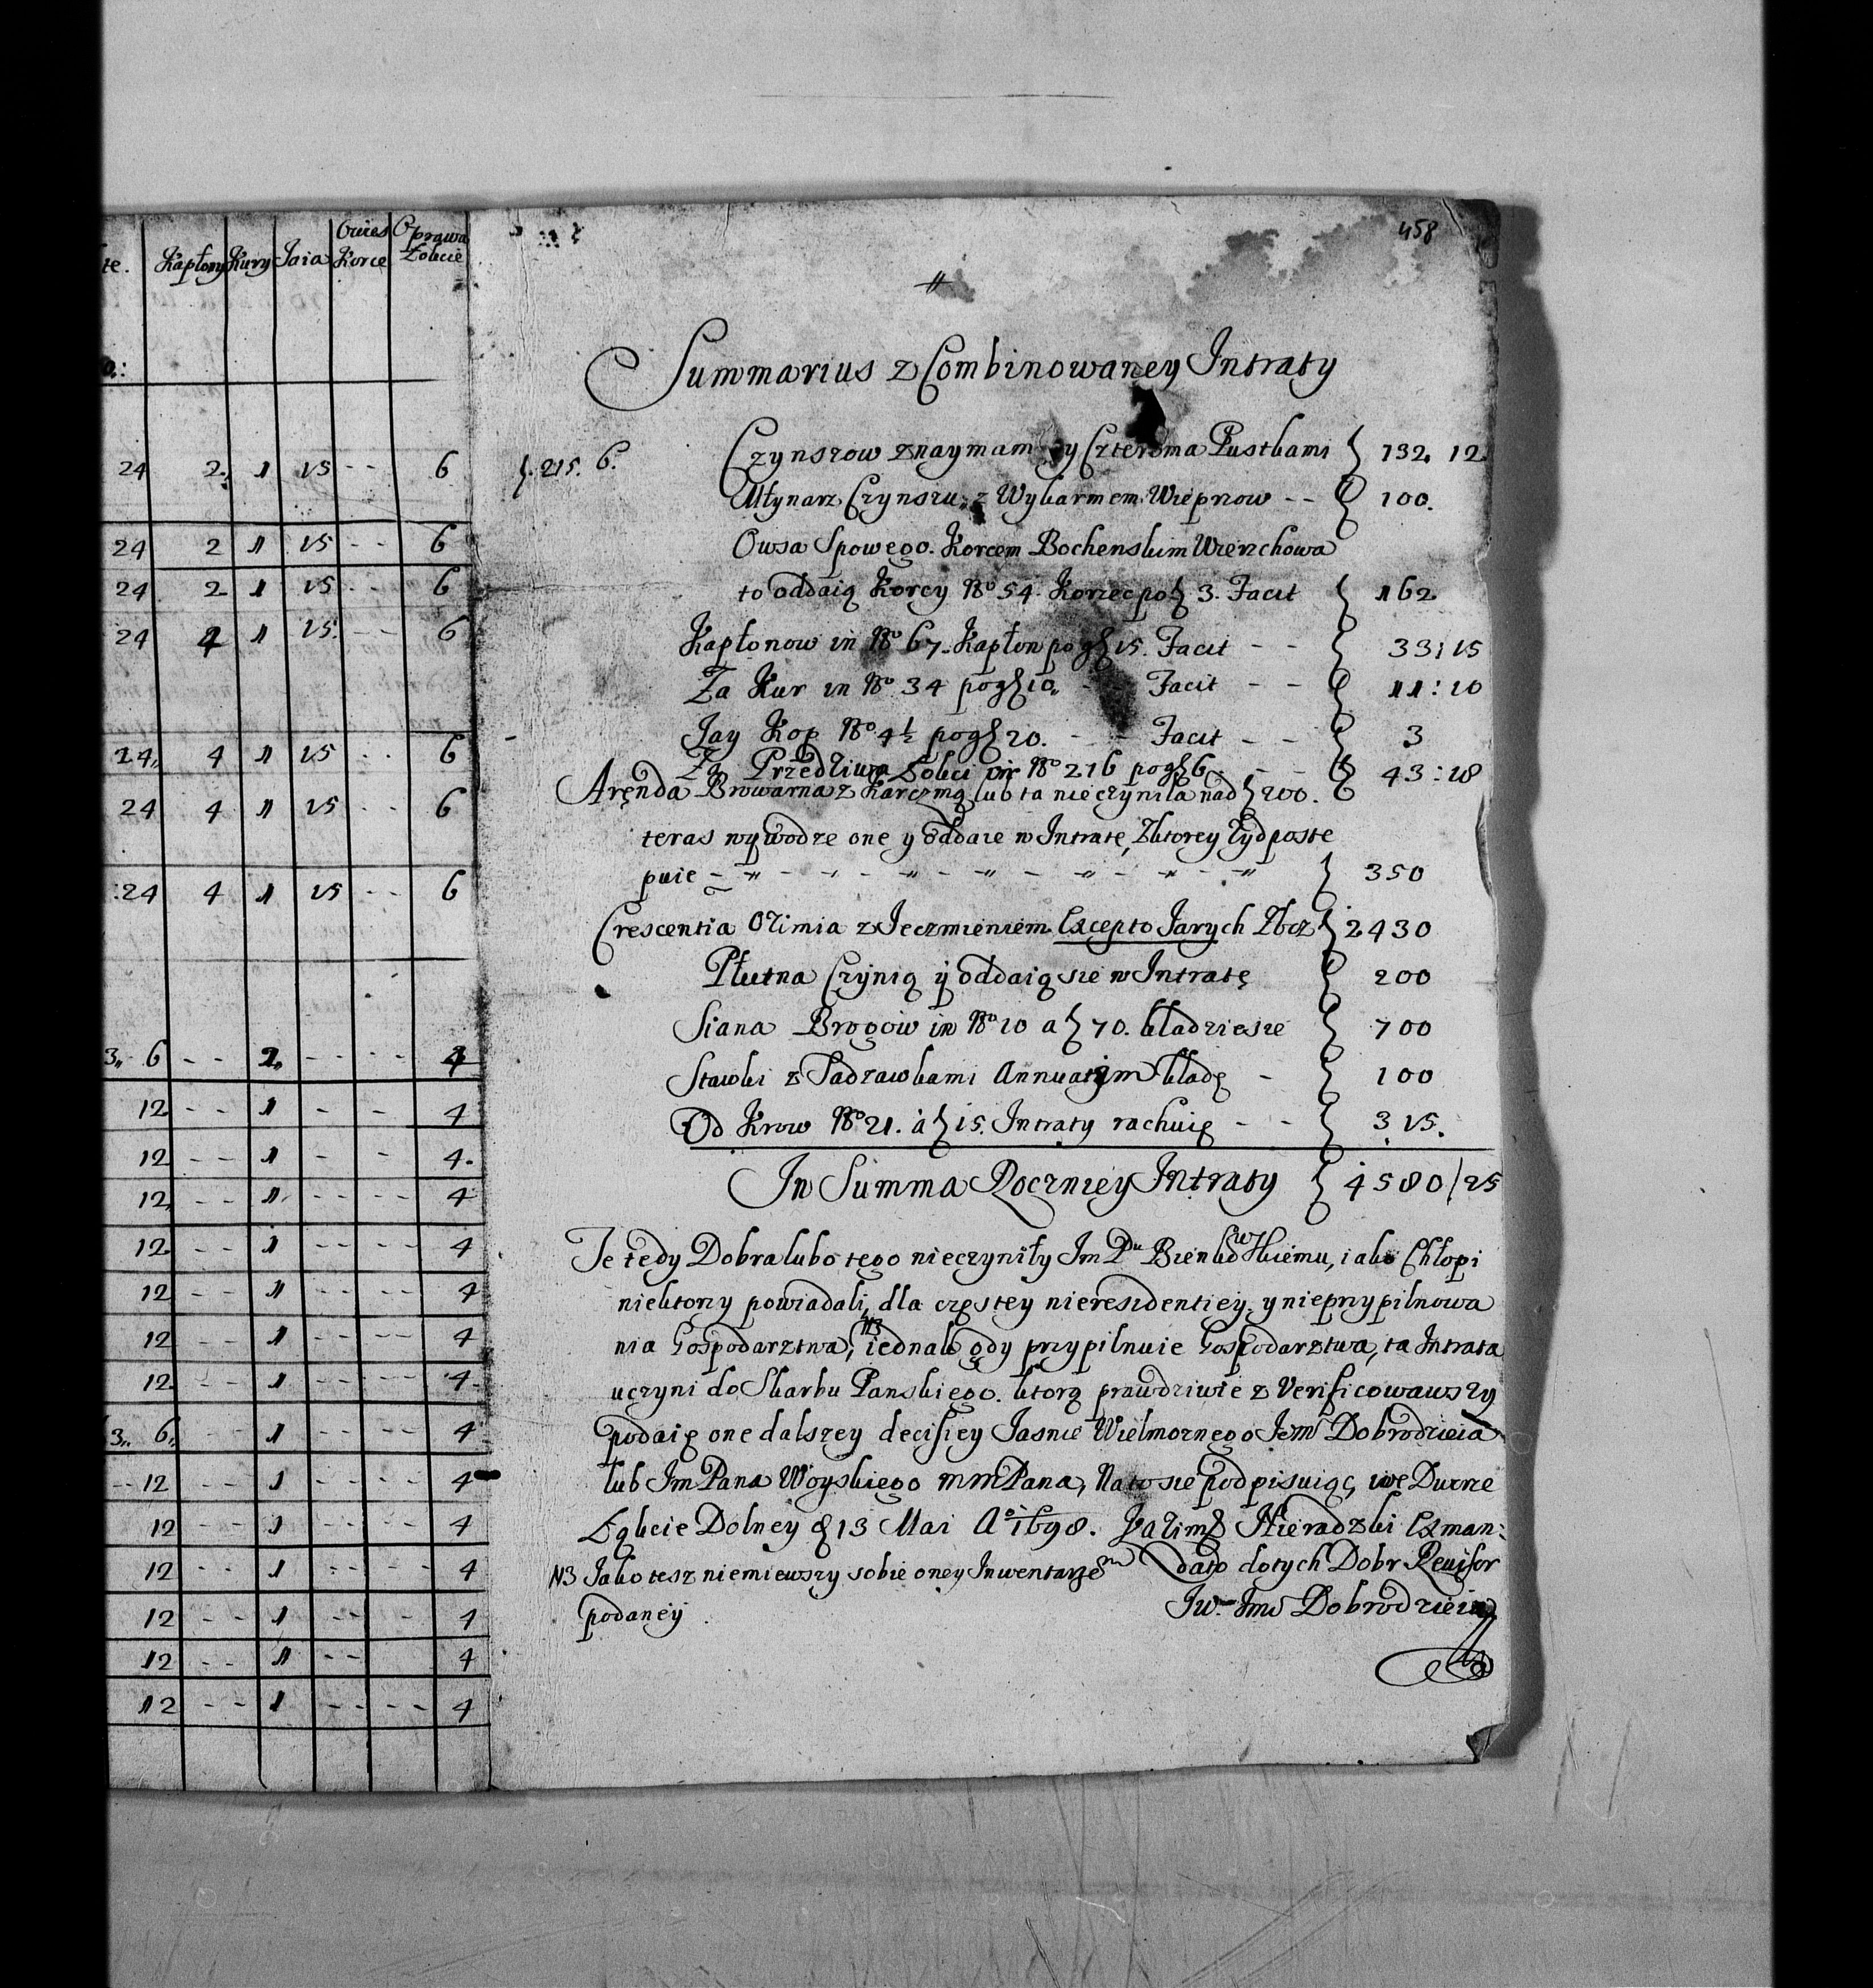 te. Kapłony Kury Jaia Owies Korce Oprawa Łokcie
o.:
24 2. 1 15 - - 6
24 2 1 15 - - 6
24 2 1 15 - - 6
24 4 1 15. - - 6
24,, 4 1 15 - - 6
24 4 1 15 - - 6
24 4 1 15 - - 6
3,, 6 - - 2,, - - - - 4
12 - - 1 - - 4
12 - - 1 - - 4.
12, - - 1 - - - - 4
12. - - 1 - - - - 4
12 - - 1 - - - - 4
12 - - 1 - - - - 4
12. - - 1 - - - - 4
3,, 6,, - - 1 - - - - 4
12 - - 1 - - - - 4
12 - - 1 - - - - 4
12 - - 1 - - - 4
12 - - 1 - - - 4
12 - - 1 - - 4
12 - - 1 - - - - 4
458
Summarius z Combinowaney Intraty
215. 6. Czynszow znaymam y Czteroma Pustkami 132. 12.
Młynarz Czynszu, z Wykarmem Wieprzow - - 100.
Owsa Spowego. Korcem Bochenskim Wierzchowa
to oddaią Korcy No 54. Korzec po 3. Facit 162.
Kapłonow in No 67. Kapłon po g 15. Facit - - 33: 15
Za Kur in No 34 po g 10. - - Facit - - 11: 10
Jay Kop No 4½ po g 20. - - Facit - - 3
Za Przedziwa Łokci in No 216 po g 6 - - - 43: 18
Aręnda Browarna z Karczmą lub ta nieczyniła nad 200.
teras wywodze one y oddaie w Intratę, Zktorey Żyd poste
puie - - - - - - - 350
Crescentia Ozimia z Ieczmieniem Excepto Jarych Zboz 2430
Płutna Czynią y oddaią sie w Intratę 200
Siana Brogow in No 10 a 70. kładzie sie 700
Stawki z Sadzawkami Annuatim kladę - 100
Od Krow No 21. a 15. Intraty rachuię - - 315.
In Summa Roczniey Intraty 4580/25
Te tedy Dobra lubo tego nieczyniły Im Pu Bienkowskiemu, iako Chłopi
niektorzy powiadali, dla częstey nieresidentiey. y nieprzypilnowa
nia Gospodarztwa, NB iednak gdy przypilnuie Gospodarztwa, ta Intrata
uczyni do Skarbu Panskiego. ktorą prawdziwie z Verificowawszy
podaię one dalszey decisiey Iasnie Wielmoznego Iemci Dobrodzieia
lub Im Pana Woyskiego m m Pana, Na to sie podpisuiąc, we Dworze
Łąkcie Dolney d 13 Mai Ao 1698. Kazimz Nieradzki Exman:
NB Iako tesz niemiewszy sobie oney Inwentarzem dato do tych Dobr Revisor
podaney. Jw. Imci Dobrodzieia